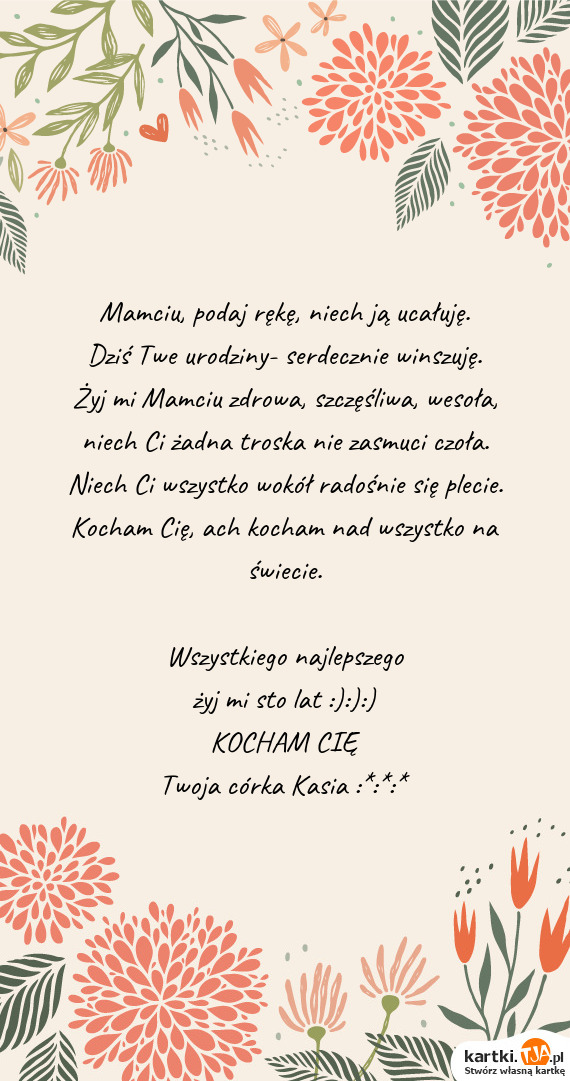 Mamciu, podaj rękę, niech ją ucałuję.
Dziś Twe urodziny- serdecznie winszuję.
Żyj mi Mamciu zdrowa, szczęśliwa, wesoła,
niech Ci żadna troska nie zasmuci czoła.
Niech Ci wszystko wokół radośnie się plecie.
Kocham Cię, ach kocham nad wszystko na
świecie.
Wszystkiego najlepszego
żyj mi sto lat :):):)
KOCHAM CIĘ
Twoja córka Kasia :*:*:*
kartki.TJA.pl
Stwórz własną kartkę